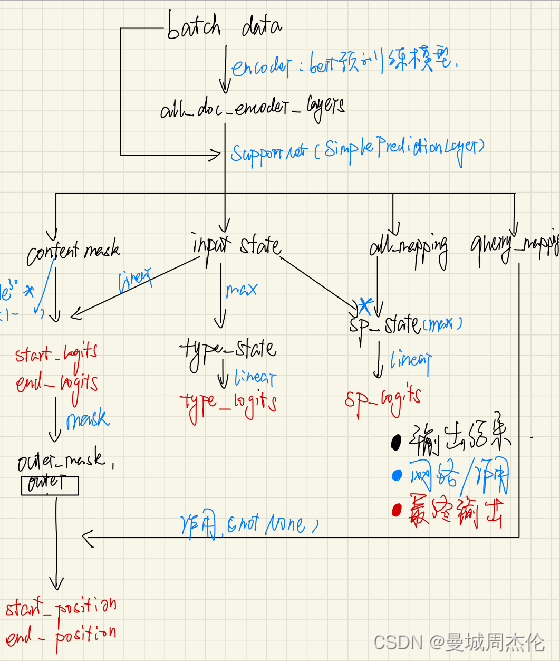 batch data
encoder: bert预训练模型.
all_doc_encoder_layers
supportnet (SimplePredictionLayer)
content mask
input state
all_mapping
query_mapping
linear
max
*
sp_state(max)
type_state
linear
linear
start_logits
end_logits
type_logits
sp_logits
mask
outer_mask,
outer
输出结果
网络/作用
最终输出
作用, (not None)
start_position
end_position
CSDN @曼城周杰伦